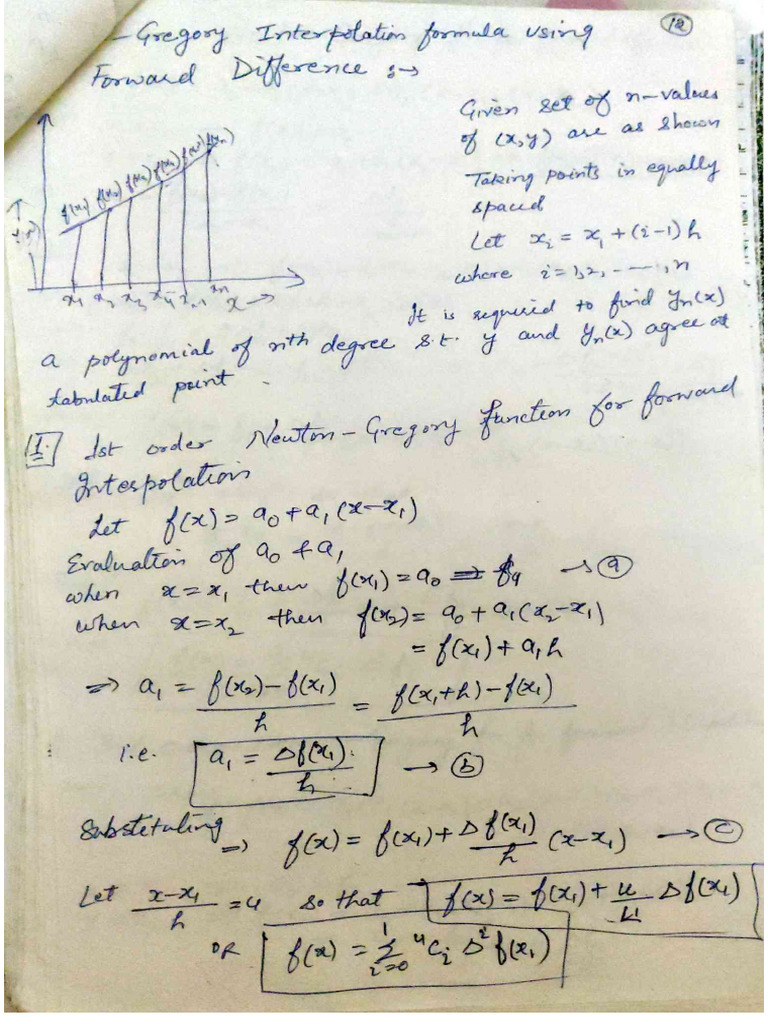 12
- Gregory Interpolation formula using
Forward Difference :→
Given set of n-values
of (x,y) are as shown
Taking points in equally
spaced
Let xᵢ = x₁ + (i-1) h
where i = 1,2, - - - -, n
f(x₁) f(x₂) f(x₃) f(x₄) f(xₙ)
x₁ x₂ x₃ x₄ xₙ₋₁ xₙ
x →
It is required to find yₙ(x)
a polynomial of nth degree s.t. y and yₙ(x) agree at
tabulated point .
1. Ist order Newton - Gregory function for forward
Interpolation
Let f(x) = a₀ + a₁ (x-x₁)
Evaluation of a₀ & a₁
when x = x₁ then f(x₁) = a₀ → (a)
when x = x₂ then f(x₂) = a₀ + a₁(x₂-x₁)
= f(x₁) + a₁h
⇒ a₁ = f(x₂) - f(x₁) / h = f(x₁+h) - f(x₁) / h
i.e. a₁ = Δf(x₁) / h → (b)
Substetuling ⇒ f(x) = f(x₁) + Δf(x₁) / h (x-x₁) → (c)
Let x-x₁ / h = u so that f(x) = f(x₁) + u / ∟1 Δf(x₁)
OR f(x) = ¹Σᵢ₌₀ ᵘCᵢ Δⁱ f(x₁)